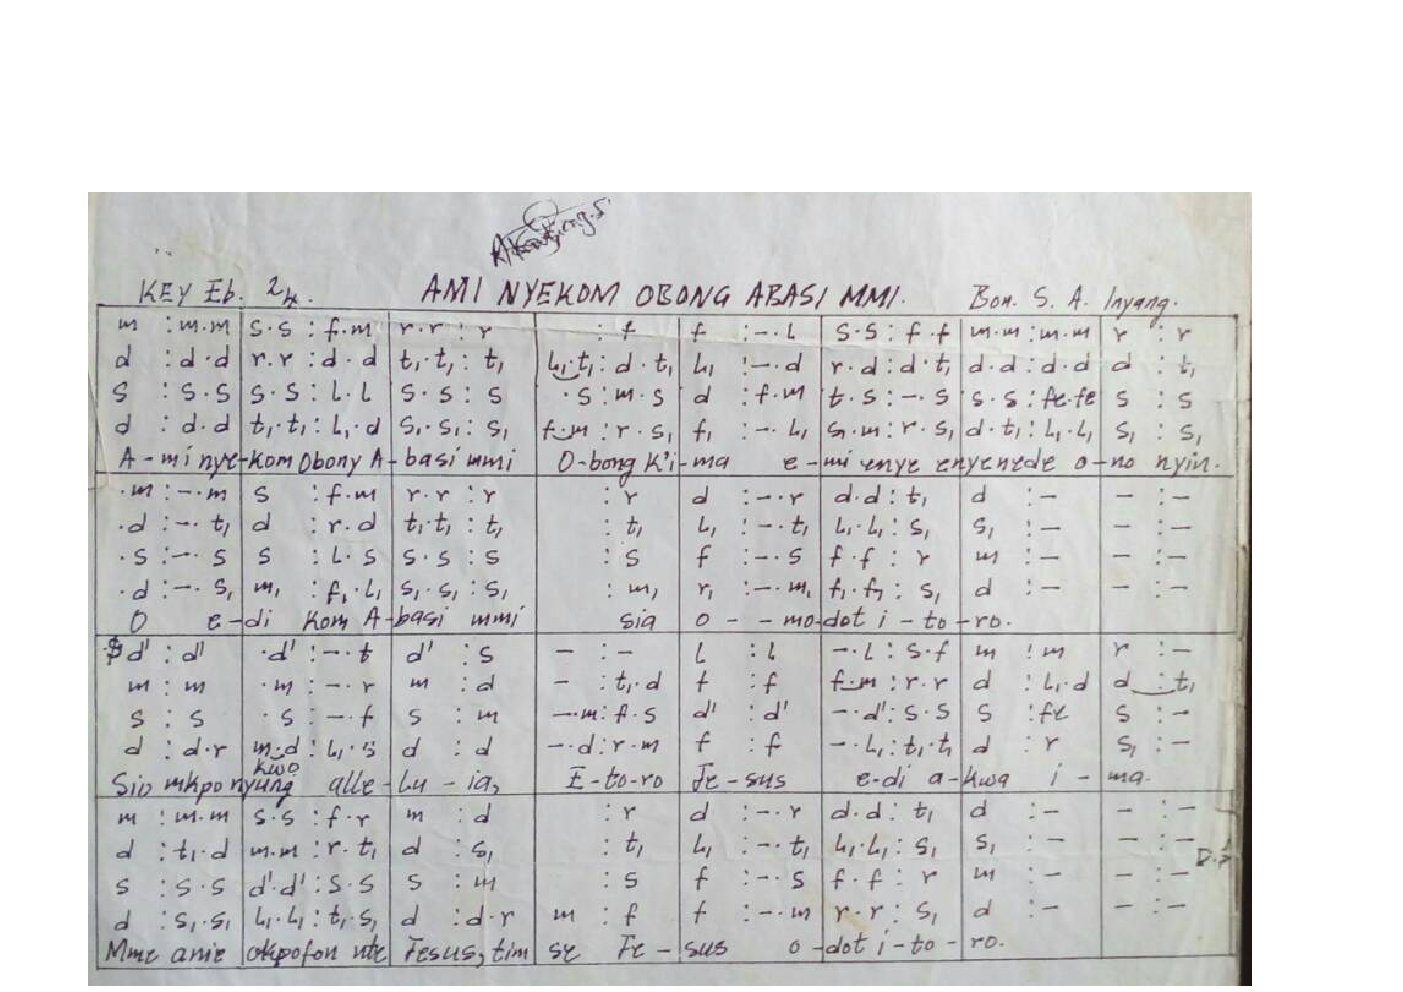 KEY Eb. 2/4. AMI NYEKOM OBONG ABASI MMI. Bon. S. A. Inyang.
m :m.m | s.s :f.m | r.r :r | :f | f :-.l | s.s :f.f | m.m :m.m | r :r
d :d.d | r.r :d.d | t₁.t₁ :t₁ | l₁.t₁ :d.t₁ | l₁ :-.d | r.d :d.t₁ | d.d :d.d | d :t₁
s :s.s | s.s :l.l | s.s :s | .s :m.s | d :f.m | t.s :-.s | s.s :fe.fe | s :s
d :d.d | t₁.t₁ :l₁.d | s₁.s₁ :s₁ | f.m :r.s₁ | f₁ :-.l₁ | s₁.m :r.s₁ | d.t₁ :l₁.l₁ | s₁ :s₁
A-mi nye-kom Obony A-basi mmi O-bong K'i-ma e-mi enye enyenede o-no nyin.
.m :-.m | s :f.m | r.r :r | :r | d :-.r | d.d :t₁ | d :- | - :-
.d :-.t₁ | d :r.d | t₁.t₁ :t₁ | :t₁ | l₁ :-.t₁ | l₁.l₁ :s₁ | s₁ :- | - :-
.s :-.s | s :l.s | s.s :s | :s | f :-.s | f.f :r | m :- | - :-
.d :-.s₁ | m₁ :f₁.l₁ | s₁.s₁ :s₁ | :m₁ | r₁ :-.m₁ | f₁.f₁ :s₁ | d :- | - :-
O e-di kom A-basi mmi sia o - - mo-dot i-to-ro.
d' :d' | .d' :-.t | d' :s | - :- | l :l | -.l :s.f | m :m | r :-
m :m | .m :-.r | m :d | - :t₁.d | f :f | f.m :r.r | d :l₁.d | d :t₁
s :s | .s :-.f | s :m | -.m :f.s | d' :d' | -.d' :s.s | s :fe | s :-
d :d.r | m.d :l₁.s | d :d | -.d :r.m | f :f | -.l₁ :t₁.t₁ | d :r | s₁ :-
kwo
Sio mkpo nyung alle-lu-ia, E-to-ro Je-sus e-di a-kwa i-ma.
m :m.m | s.s :f.r | m :d | :r | d :-.r | d.d :t₁ | d :- | - :-
d :t₁.d | m.m :r.t₁ | d :s₁ | :t₁ | l₁ :-.t₁ | l₁.l₁ :s₁ | s₁ :- | - :-
s :s.s | d'.d' :s.s | s :m | :s | f :-.s | f.f :r | m :- | - :-
d :s₁.s₁ | l₁.l₁ :t₁.s₁ | d :d.r | m :f | f :-.m | r.r :s₁ | d :- | - :-
Mme anie okpofon nte Jesus, tim se Je-sus o-dot i-to-ro.